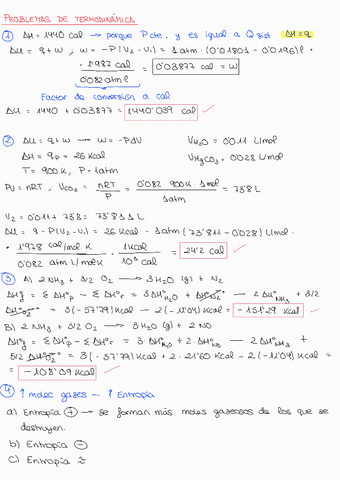 PROBLEMAS DE TERMODINÁMICA
① ΔH = 1440 cal → porque P cte, y es igual a Q sist ΔH = q
ΔU = q + w ; w = -P(V₂ - V₁) = 1 atm · (0'01801 - 0'0196) l ·
· 1'987 cal / 0'082 atm l = 0'03877 cal = w
Factor de conversión a cal
ΔU = 1440 + 0'03877 = 1440'039 cal ✓
② ΔU = q + w → w = -PdV V H₂O = 0'011 L/mol
ΔH = qp = 26 Kcal V MgCO₃ = 0'028 L/mol
T = 900 K, P = 1 atm
PV = nRT ; V CO₂ = nRT / P = 0'082 · 900 K · 1 mol / 1 atm = 73'8 L
V₂ = 0'011 + 73'8 = 73'811 L
ΔU = q - P(V₂ - V₁) = 26 Kcal - 1 atm (73'811 - 0'028) L/mol ·
· 1'978 cal/mol K / 0'082 atm L/mol K · 1 Kcal / 10³ cal = 24'2 Kcal ✓
③ A) 2 NH₃ + 3/2 O₂ → 3 H₂O (g) + N₂
ΔHºf = ΣΔHºp - ΣΔHºr = 3 ΔHº H₂O + ΔHº N₂ - 2 ΔHº NH₃ + 3/2
ΔHº O₂ = 3 (-57'79) Kcal - 2 (-11'04) Kcal = -151'29 Kcal ✓
B) 2 NH₃ + 5/2 O₂ → 3 H₂O (g) + 2 NO
ΔHºf = ΣΔHºp - ΣΔHºr = 3 · ΔHº H₂O + 2 · ΔHº NO - 2 ΔHº NH₃ +
5/2 ΔHº O₂ = 3 (-57'79) Kcal + 2 · 21'60 Kcal - 2 (-11'04) Kcal =
= -108'09 Kcal ✓
④ ↑ moles gases - ↑ Entropía
a) Entropía ⊕ → se forman más moles gaseosos de los que se
destruyen.
b) Entropía ⊖
c) Entropía ≈